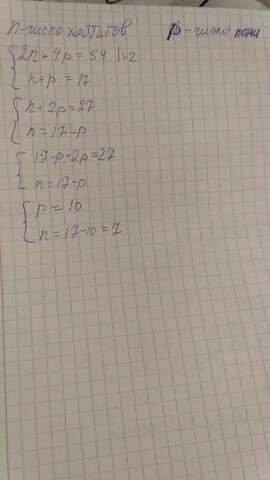 n-число хоббитов p - число пони
2n + 4p = 54 |:2
n+p = 17
n + 2p = 27
n = 17-p
17-p+2p=27
n=17-p
p = 10
n = 17-10 = 7